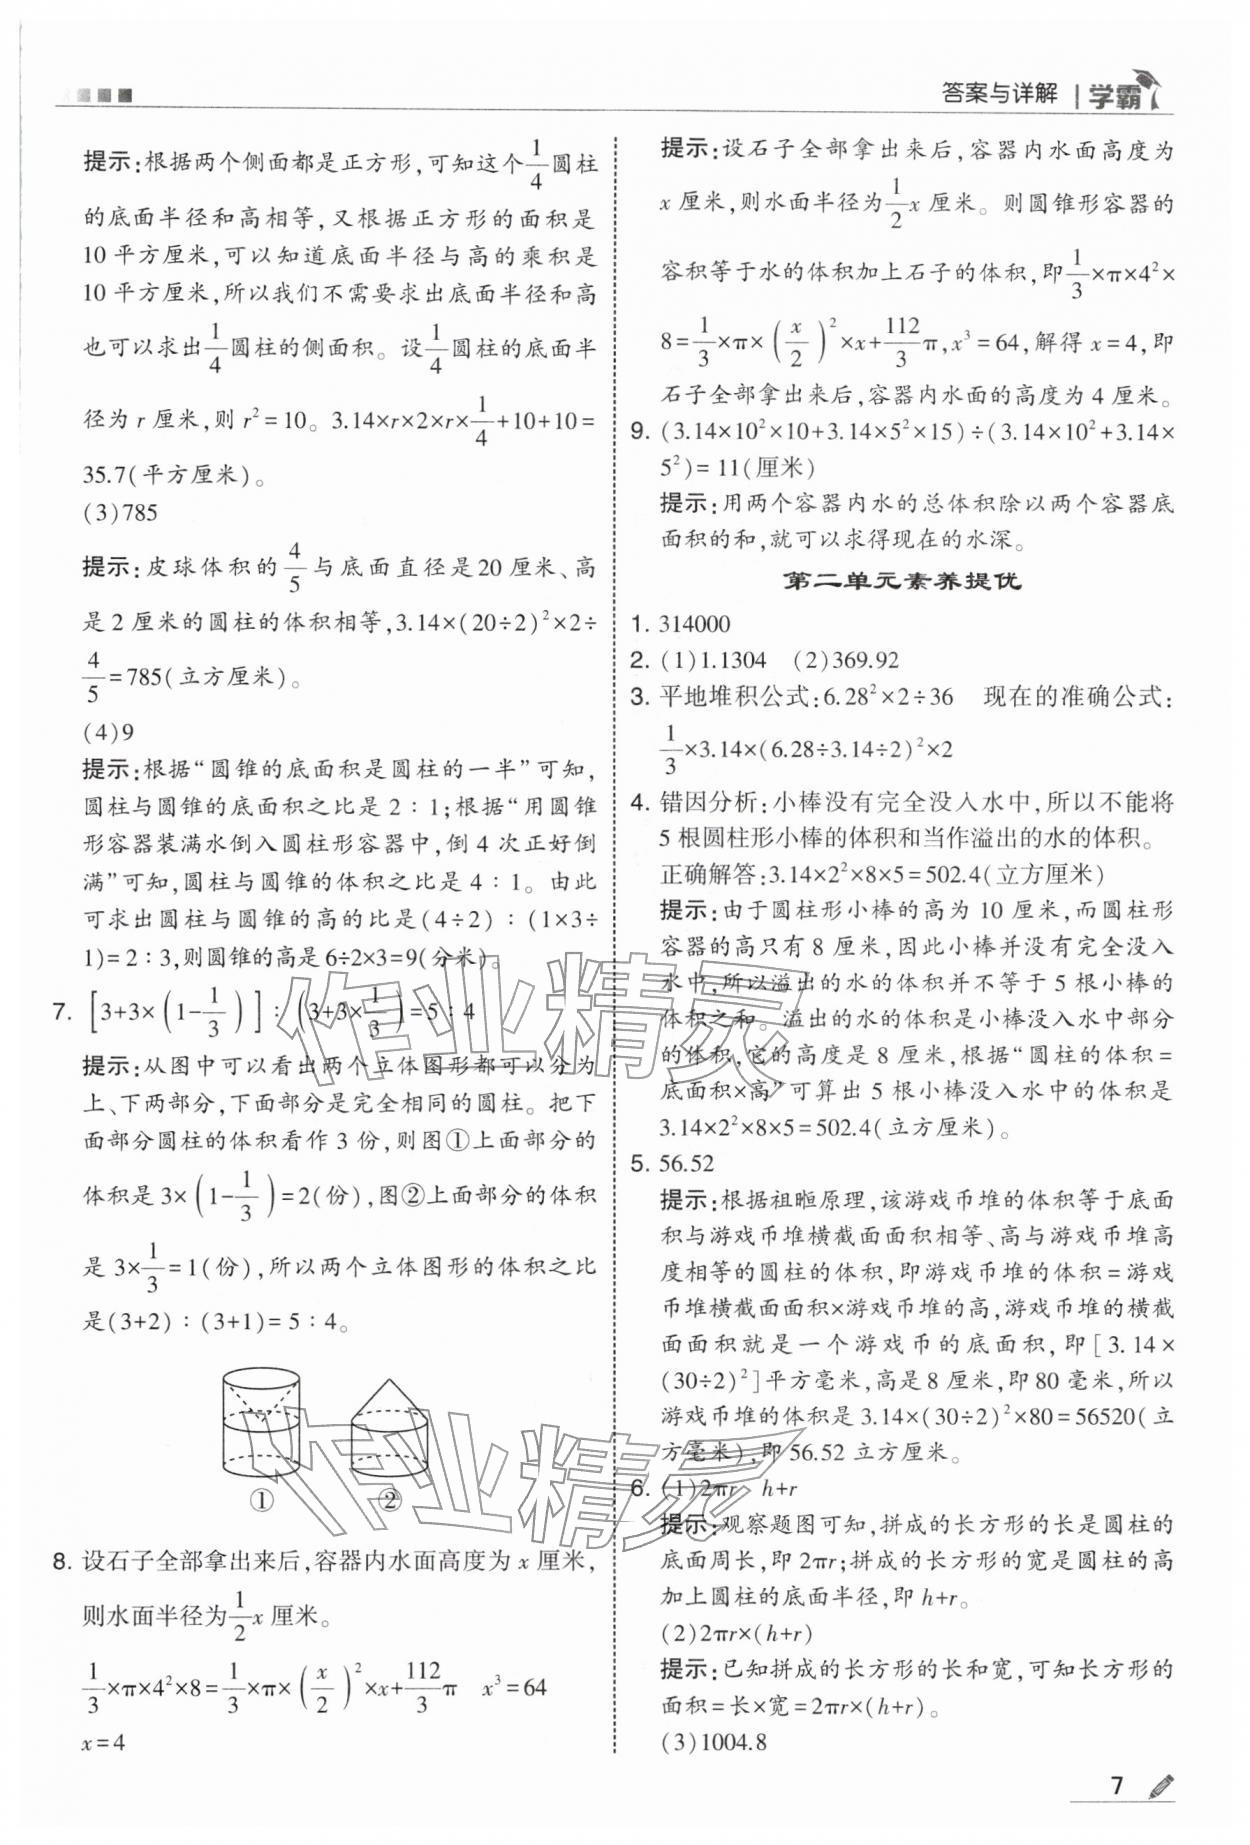 答案与详解 学霸
提示:根据两个侧面都是正方形,可知这个1/4圆柱
的底面半径和高相等,又根据正方形的面积是
10平方厘米,可以知道底面半径与高的乘积是
10平方厘米,所以我们不需要求出底面半径和高
也可以求出1/4圆柱的侧面积。设1/4圆柱的底面半
径为r厘米,则r²=10。3.14×r×2×r×1/4+10+10=
35.7(平方厘米)。
(3)785
提示:皮球体积的4/5与底面直径是20厘米、高
是2厘米的圆柱的体积相等,3.14×(20÷2)²×2÷
4/5=785(立方厘米)。
(4)9
提示:根据“圆锥的底面积是圆柱的一半”可知,
圆柱与圆锥的底面积之比是2∶1;根据“用圆锥
形容器装满水倒入圆柱形容器中,倒4次正好倒
满”可知,圆柱与圆锥的体积之比是4∶1。由此
可求出圆柱与圆锥的高的比是(4÷2)∶(1×3÷
1)=2∶3,则圆锥的高是6÷2×3=9(分米)。
7. [3+3×(1-1/3)]∶(3+3×1/3)=5∶4
提示:从图中可以看出两个立体图形都可以分为
上、下两部分,下面部分是完全相同的圆柱。把下
面部分圆柱的体积看作3份,则图①上面部分的
体积是3×(1-1/3)=2(份),图②上面部分的体积
是3×1/3=1(份),所以两个立体图形的体积之比
是(3+2)∶(3+1)=5∶4。
① ②
8. 设石子全部拿出来后,容器内水面高度为x厘米,
则水面半径为1/2x厘米。
1/3×π×4²×8=1/3×π×(x/2)²×x+112/3π x³=64
x=4
提示:设石子全部拿出来后,容器内水面高度为
x厘米,则水面半径为1/2x厘米。则圆锥形容器的
容积等于水的体积加上石子的体积,即1/3×π×4²×
8=1/3×π×(x/2)²×x+112/3π,x³=64,解得x=4,即
石子全部拿出来后,容器内水面的高度为4厘米。
9. (3.14×10²×10+3.14×5²×15)÷(3.14×10²+3.14×
5²)=11(厘米)
提示:用两个容器内水的总体积除以两个容器底
面积的和,就可以求得现在的水深。
第二单元素养提优
1. 314000
2. (1)1.1304 (2)369.92
3. 平地堆积公式:6.28²×2÷36 现在的准确公式:
1/3×3.14×(6.28÷3.14÷2)²×2
4. 错因分析:小棒没有完全没入水中,所以不能将
5根圆柱形小棒的体积和当作溢出的水的体积。
正确解答:3.14×2²×8×5=502.4(立方厘米)
提示:由于圆柱形小棒的高为10厘米,而圆柱形
容器的高只有8厘米,因此小棒并没有完全没入
水中,所以溢出的水的体积并不等于5根小棒的
体积之和。溢出的水的体积是小棒没入水中部分
的体积,它的高度是8厘米,根据“圆柱的体积=
底面积×高”可算出5根小棒没入水中的体积是
3.14×2²×8×5=502.4(立方厘米)。
5. 56.52
提示:根据祖暅原理,该游戏币堆的体积等于底面
积与游戏币堆横截面面积相等、高与游戏币堆高
度相等的圆柱的体积,即游戏币堆的体积=游戏
币堆横截面面积×游戏币堆的高,游戏币堆的横截
面面积就是一个游戏币的底面积,即[3.14×
(30÷2)²]平方毫米,高是8厘米,即80毫米,所以
游戏币堆的体积是3.14×(30÷2)²×80=56520(立
方毫米),即56.52立方厘米。
6. (1)2πr h+r
提示:观察题图可知,拼成的长方形的长是圆柱的
底面周长,即2πr;拼成的长方形的宽是圆柱的高
加上圆柱的底面半径,即h+r。
(2)2πr×(h+r)
提示:已知拼成的长方形的长和宽,可知长方形的
面积=长×宽=2πr×(h+r)。
(3)1004.8
7
作业精灵
作业精灵